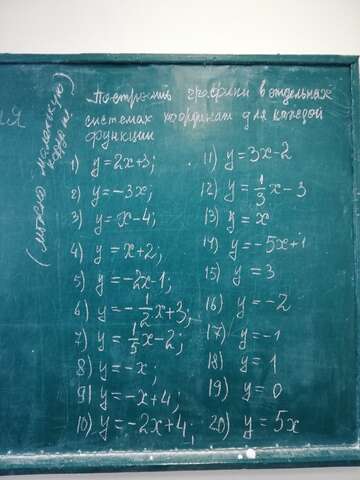 Построить графики в отдельных
системах координат для каждой
функции
(можно маленькую
ИЯ
1) y=2x+3;
2) y=-3x;
3) y=x-4;
4) y=x+2;
5) y=-2x-1;
6) y=-1/2x+3;
7) y=1/5x-2;
8) y=-x;
9) y=-x+4;
10) y=-2x+4;
11) y=3x-2
12) y=1/3x-3
13) y=x
14) y=-5x+1
15) y=3
16) y=-2
17) y=-1
18) y=1
19) y=0
20) y=5x